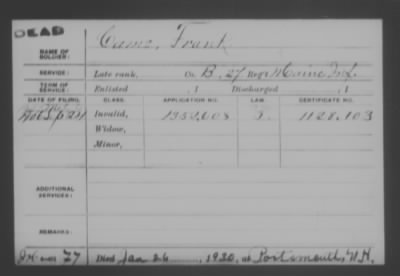 DEAD
NAME OF SOLDIER: Came, Frank
SERVICE: Late rank, Co. B, 27 Reg't Maine Inf.
TERM OF SERVICE: Enlisted , 1 Discharged , 1
DATE OF FILING. CLASS. APPLICATION NO. LAW. CERTIFICATE NO.
Invalid, 1128,103
Widow,
Minor,
ADDITIONAL SERVICES:
REMARKS:
77 Died Jan 26, 1930, at Portsmouth, N.H.